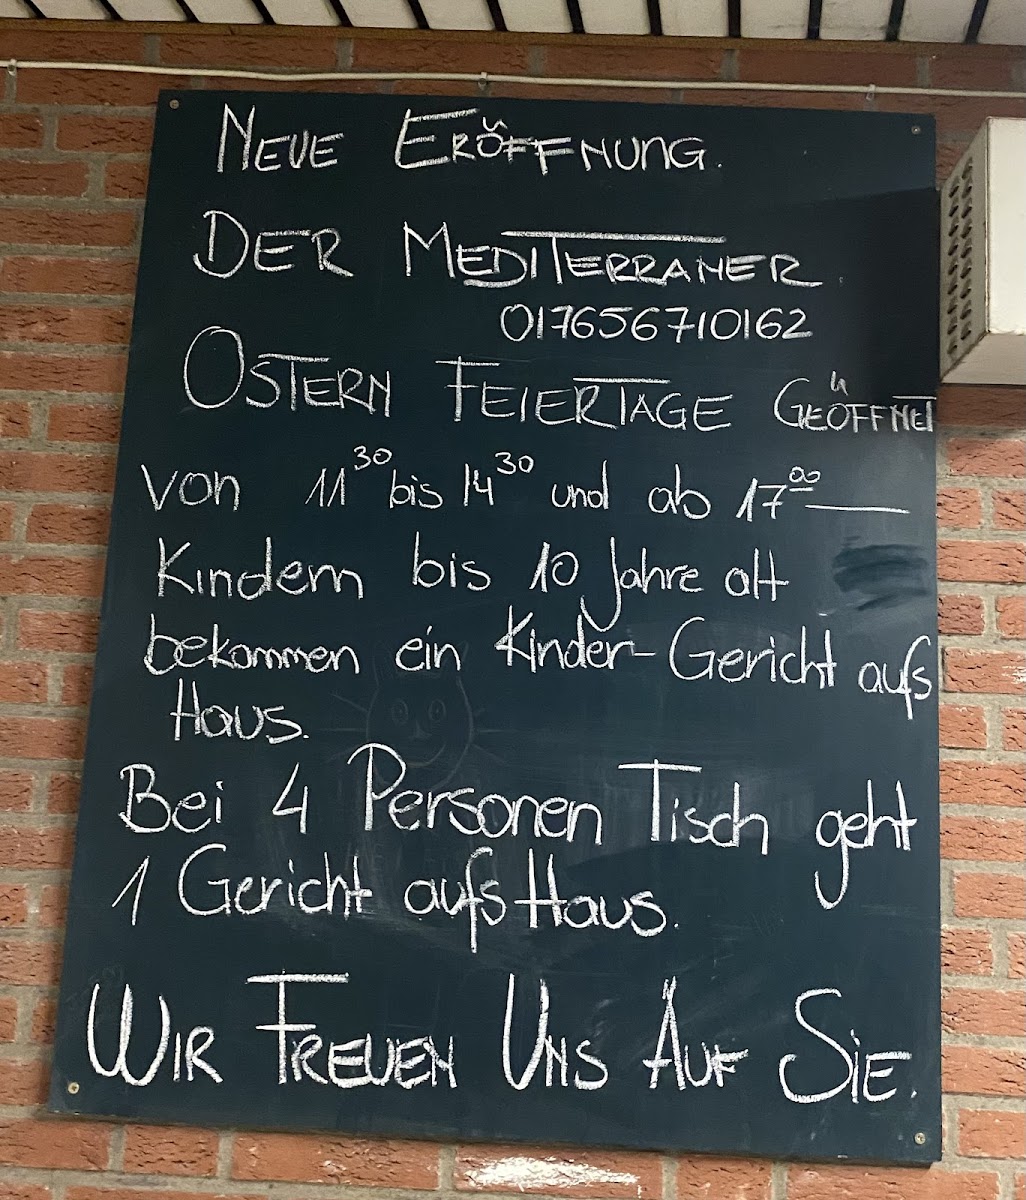 NEUE ERÖFFNUNG.
DER MEDITERRANER
017656710162
OSTERN FEIERTAGE GEÖFFNET
von 11³⁰ bis 14³⁰ und ab 17⁰⁰
Kindern bis 10 Jahre alt
bekommen ein Kinder-Gericht aufs
Haus.
Bei 4 Personen Tisch geht
1 Gericht aufs Haus.
WIR FREUEN UNS ÄUF SIE.